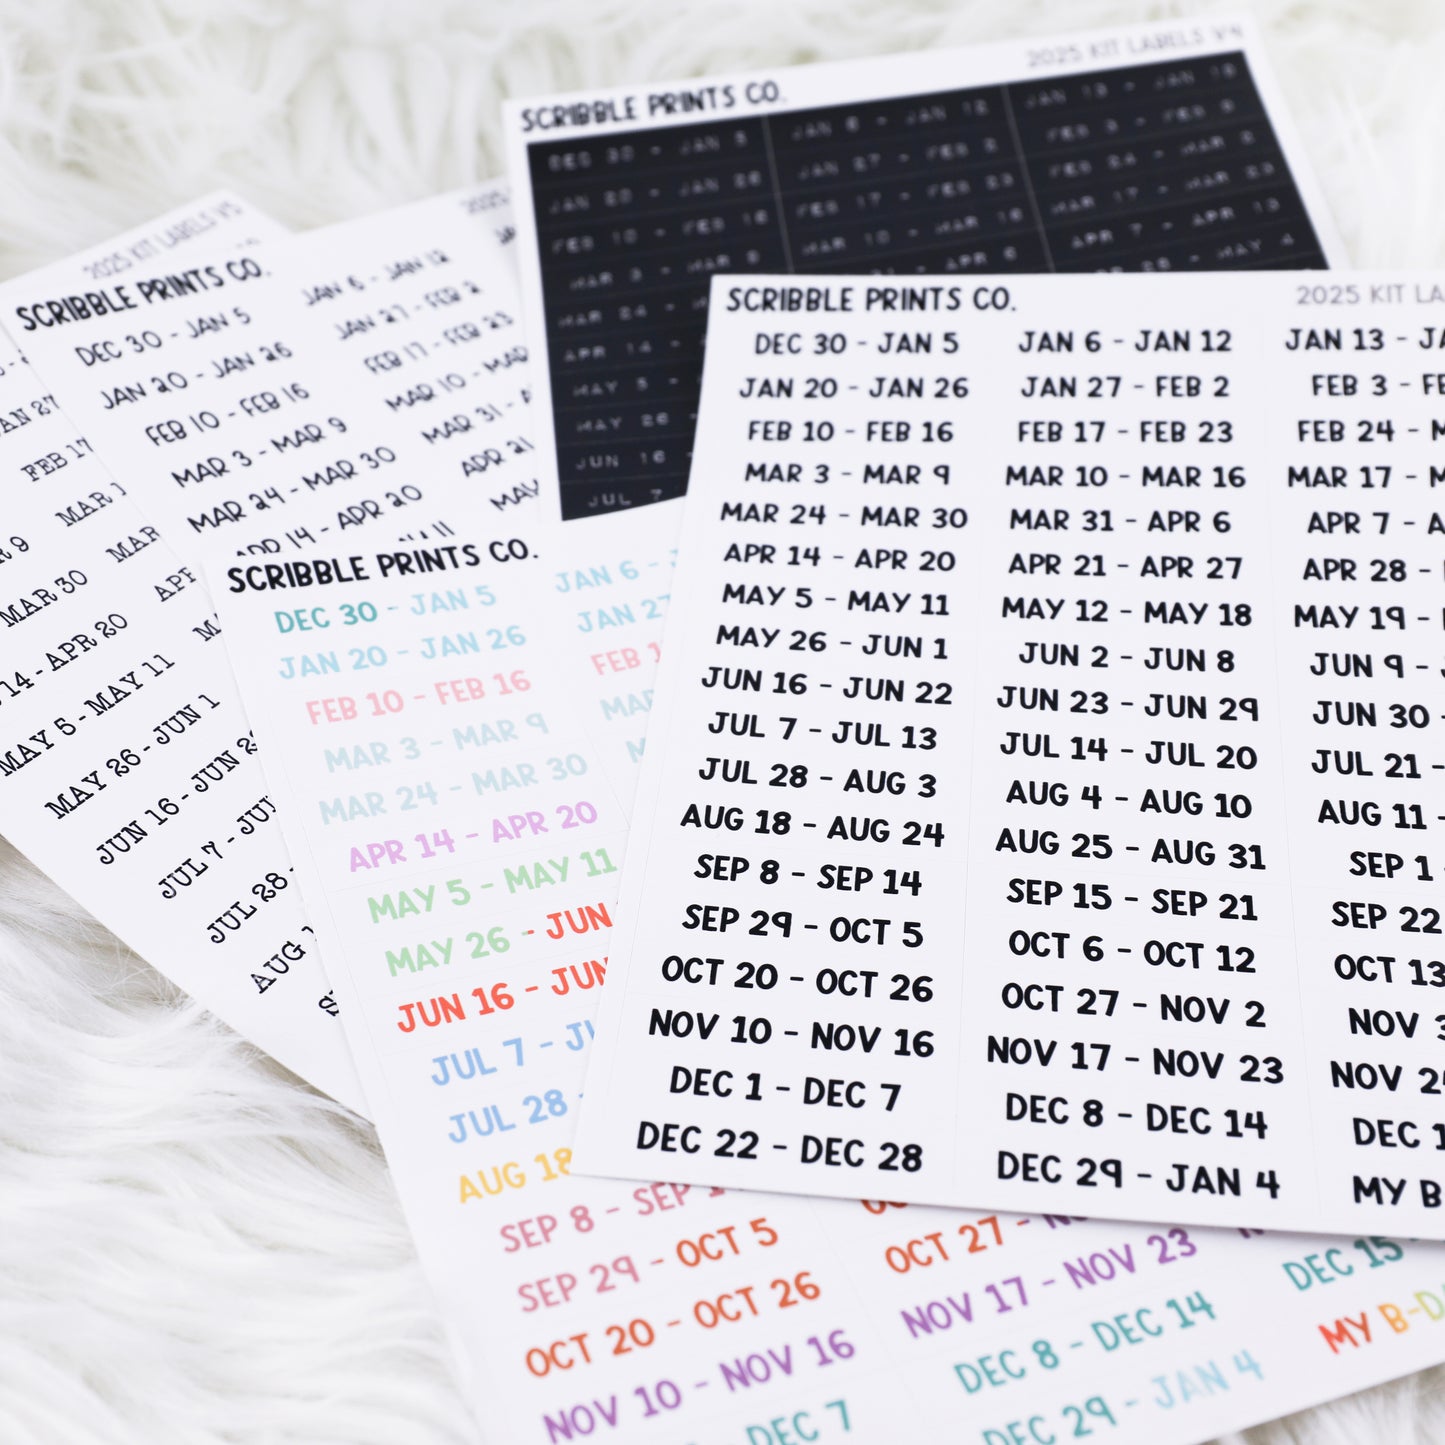 2025 KIT LABELS V4
SCRIBBLE PRINTS CO.
DEC 30 - JAN 5 JAN 6 - JAN 12 JAN 13 - JAN 19
JAN 20 - JAN 26 JAN 27 - FEB 2 FEB 3 - FEB 9
FEB 10 - FEB 16 FEB 17 - FEB 23 FEB 24 - MAR 2
MAR 3 - MAR 9 MAR 10 - MAR 16 MAR 17 - MAR 23
MAR 24 - APR 6 APR 7 - APR 13
APR 14 - MAY 4
MAY 5 -
MAY 26
JUN 16
JUL 7
2025 KIT LABELS V5
2025
SCRIBBLE PRINTS CO.
DEC 30 - JAN 5 JAN 6 - JAN 12
JAN 20 - JAN 26 JAN 27 - FEB 2
FEB 10 - FEB 16 FEB 17 - FEB 23
MAR 3 - MAR 9 MAR 10 - MAR
MAR 24 - MAR 30 MAR 31 -
APR 14 - APR 20 APR 21
MAY
AN 27
FEB 17
R 9 MAR 1
MAR 30 MAR
14 - APR 20 APR
MAY 5 - MAY 11
MAY 26 - JUN 1
JUN 16 - JUN 2
JUL 7 - JUL
JUL 28 -
AUG 1
SCRIBBLE PRINTS CO.
DEC 30 - JAN 5 JAN 6 -
JAN 20 - JAN 26 JAN 27
FEB 10 - FEB 16 FEB 1
MAR 3 - MAR 9 MAR
MAR 24 - MAR 30
APR 14 - APR 20
MAY 5 - MAY 11
MAY 26 - JUN
JUN 16 - JUN
JUL 7 - JU
JUL 28 -
AUG 18
SEP 8 - SEP 1
SEP 29 - OCT 5 OCT 27 -
OCT 20 - OCT 26 NOV 17 - NOV 23 DEC 15 -
NOV 10 - NOV 16 DEC 8 - DEC 14 MY B-D
DEC 7 DEC 29 - JAN 4
SCRIBBLE PRINTS CO. 2025 KIT LA
DEC 30 - JAN 5 JAN 6 - JAN 12 JAN 13 - JA
JAN 20 - JAN 26 JAN 27 - FEB 2 FEB 3 - FE
FEB 10 - FEB 16 FEB 17 - FEB 23 FEB 24 - M
MAR 3 - MAR 9 MAR 10 - MAR 16 MAR 17 - M
MAR 24 - MAR 30 MAR 31 - APR 6 APR 7 - A
APR 14 - APR 20 APR 21 - APR 27 APR 28 -
MAY 5 - MAY 11 MAY 12 - MAY 18 MAY 19 -
MAY 26 - JUN 1 JUN 2 - JUN 8 JUN 9 -
JUN 16 - JUN 22 JUN 23 - JUN 29 JUN 30 -
JUL 7 - JUL 13 JUL 14 - JUL 20 JUL 21 -
JUL 28 - AUG 3 AUG 4 - AUG 10 AUG 11 -
AUG 18 - AUG 24 AUG 25 - AUG 31 SEP 1
SEP 8 - SEP 14 SEP 15 - SEP 21 SEP 22
SEP 29 - OCT 5 OCT 6 - OCT 12 OCT 13
OCT 20 - OCT 26 OCT 27 - NOV 2 NOV 3
NOV 10 - NOV 16 NOV 17 - NOV 23 NOV 2
DEC 1 - DEC 7 DEC 8 - DEC 14 DEC 1
DEC 22 - DEC 28 DEC 29 - JAN 4 MY B